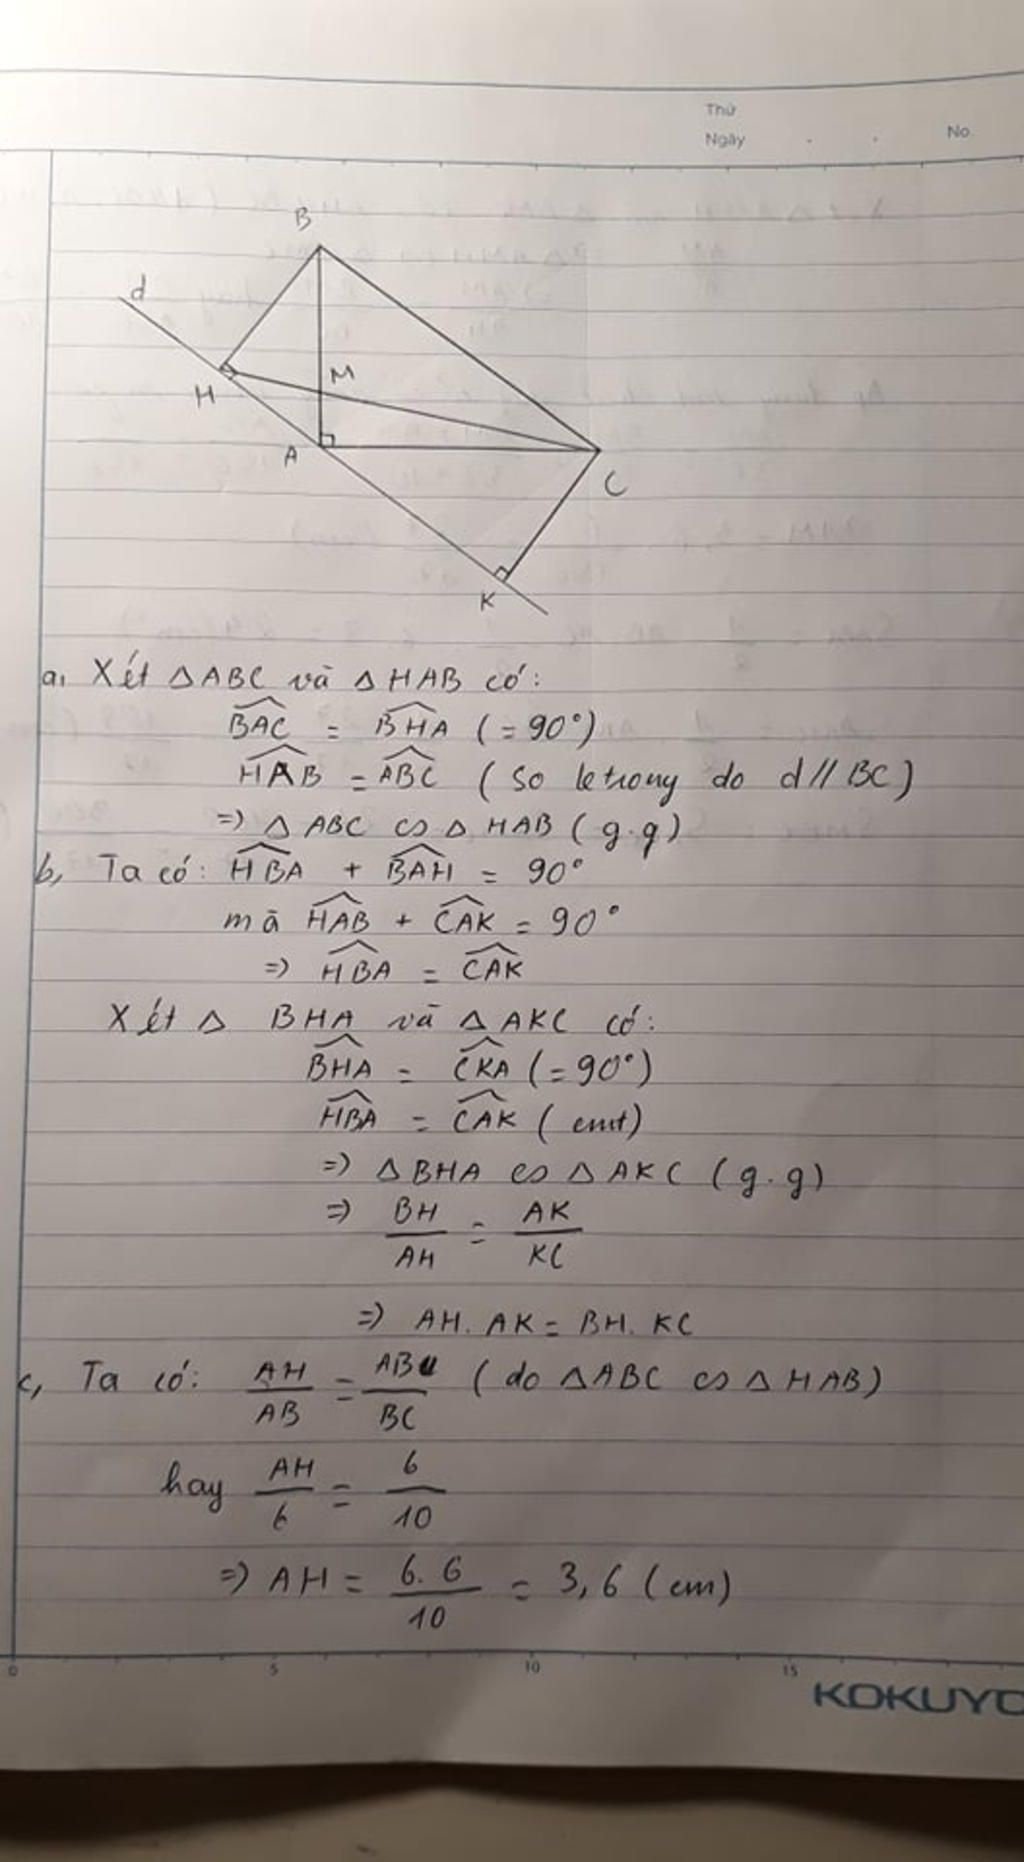 Thứ
Ngày . . No.
B
d
H
M
A
C
K
a, Xét △ABC và △HAB có:
$\widehat{BAC}$ = $\widehat{BHA}$ (=90°)
$\widehat{HAB}$ = $\widehat{ABC}$ (so le trong do d//BC)
=> △ABC ∽ △HAB (g.g)
b, Ta có: $\widehat{HBA}$ + $\widehat{BAH}$ = 90°
mà $\widehat{HAB}$ + $\widehat{CAK}$ = 90°
=> $\widehat{HBA}$ = $\widehat{CAK}$
Xét △ BHA và △AKC có:
$\widehat{BHA}$ = $\widehat{CKA}$ (=90°)
$\widehat{HBA}$ = $\widehat{CAK}$ (cmt)
=> △BHA ∽ △AKC (g.g)
=> $\frac{BH}{AH}$ = $\frac{AK}{KC}$
=> AH. AK = BH. KC
c, Ta có: $\frac{AH}{AB}$ = $\frac{AB}{BC}$ (do △ABC ∽ △HAB)
hay $\frac{AH}{6}$ = $\frac{6}{10}$
=> AH = $\frac{6.6}{10}$ = 3,6 (cm)
0 5 10 15
KOKUYO